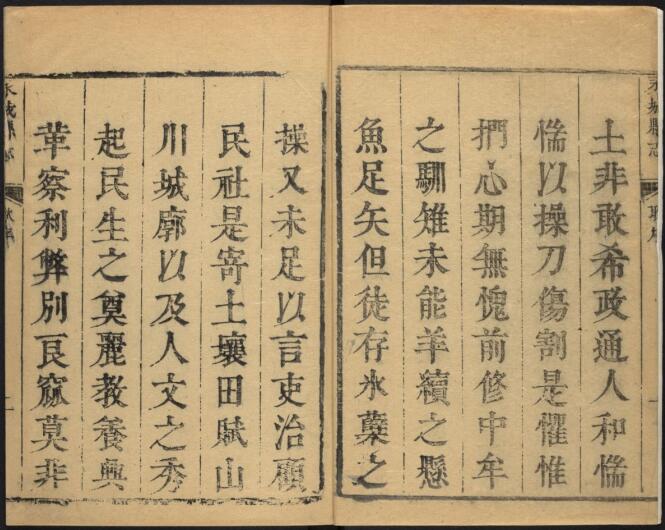 永城縣志
土非敢希政通人和惴
惴以操刀傷割是懼惟
捫心期無愧前修中牟
之馴雉未能羊續之懸
魚足矣但徒存氷蘗之
操又未足以言吏治顧
民社是寄土壤田賦山
川城廓以及人文之秀
起民生之奠麗教養興
革察利弊別良窳莫非
永城縣志